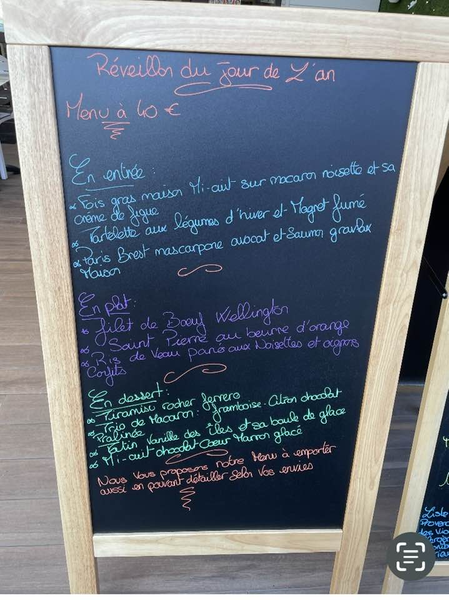 Réveillon du jour de L'an
Menu à 40 €
En entrée :
Fois gras maison Mi-cuit sur macaron noisette et sa
crème de figue
Tartelette aux légumes d'hiver et Magret fumé
Paris Brest mascarpone avocat et Saumon gravlax
Maison
En plat :
Filet de Boeuf Wellington
Saint Pierre au beurre d'orange
Ris de Veau panés aux Noisettes et oignons
Confits
En dessert :
Tiramisu rocher ferrero
Trio de Macaron : framboise. Citron chocolat
Pralinée
Tatin Vanille des îles et sa boule de glace
Mi-cuit chocolat Coeur Marron glacé
Nous Vous proposons notre Menu à emporter
aussi en pouvant détailler selon vos envies